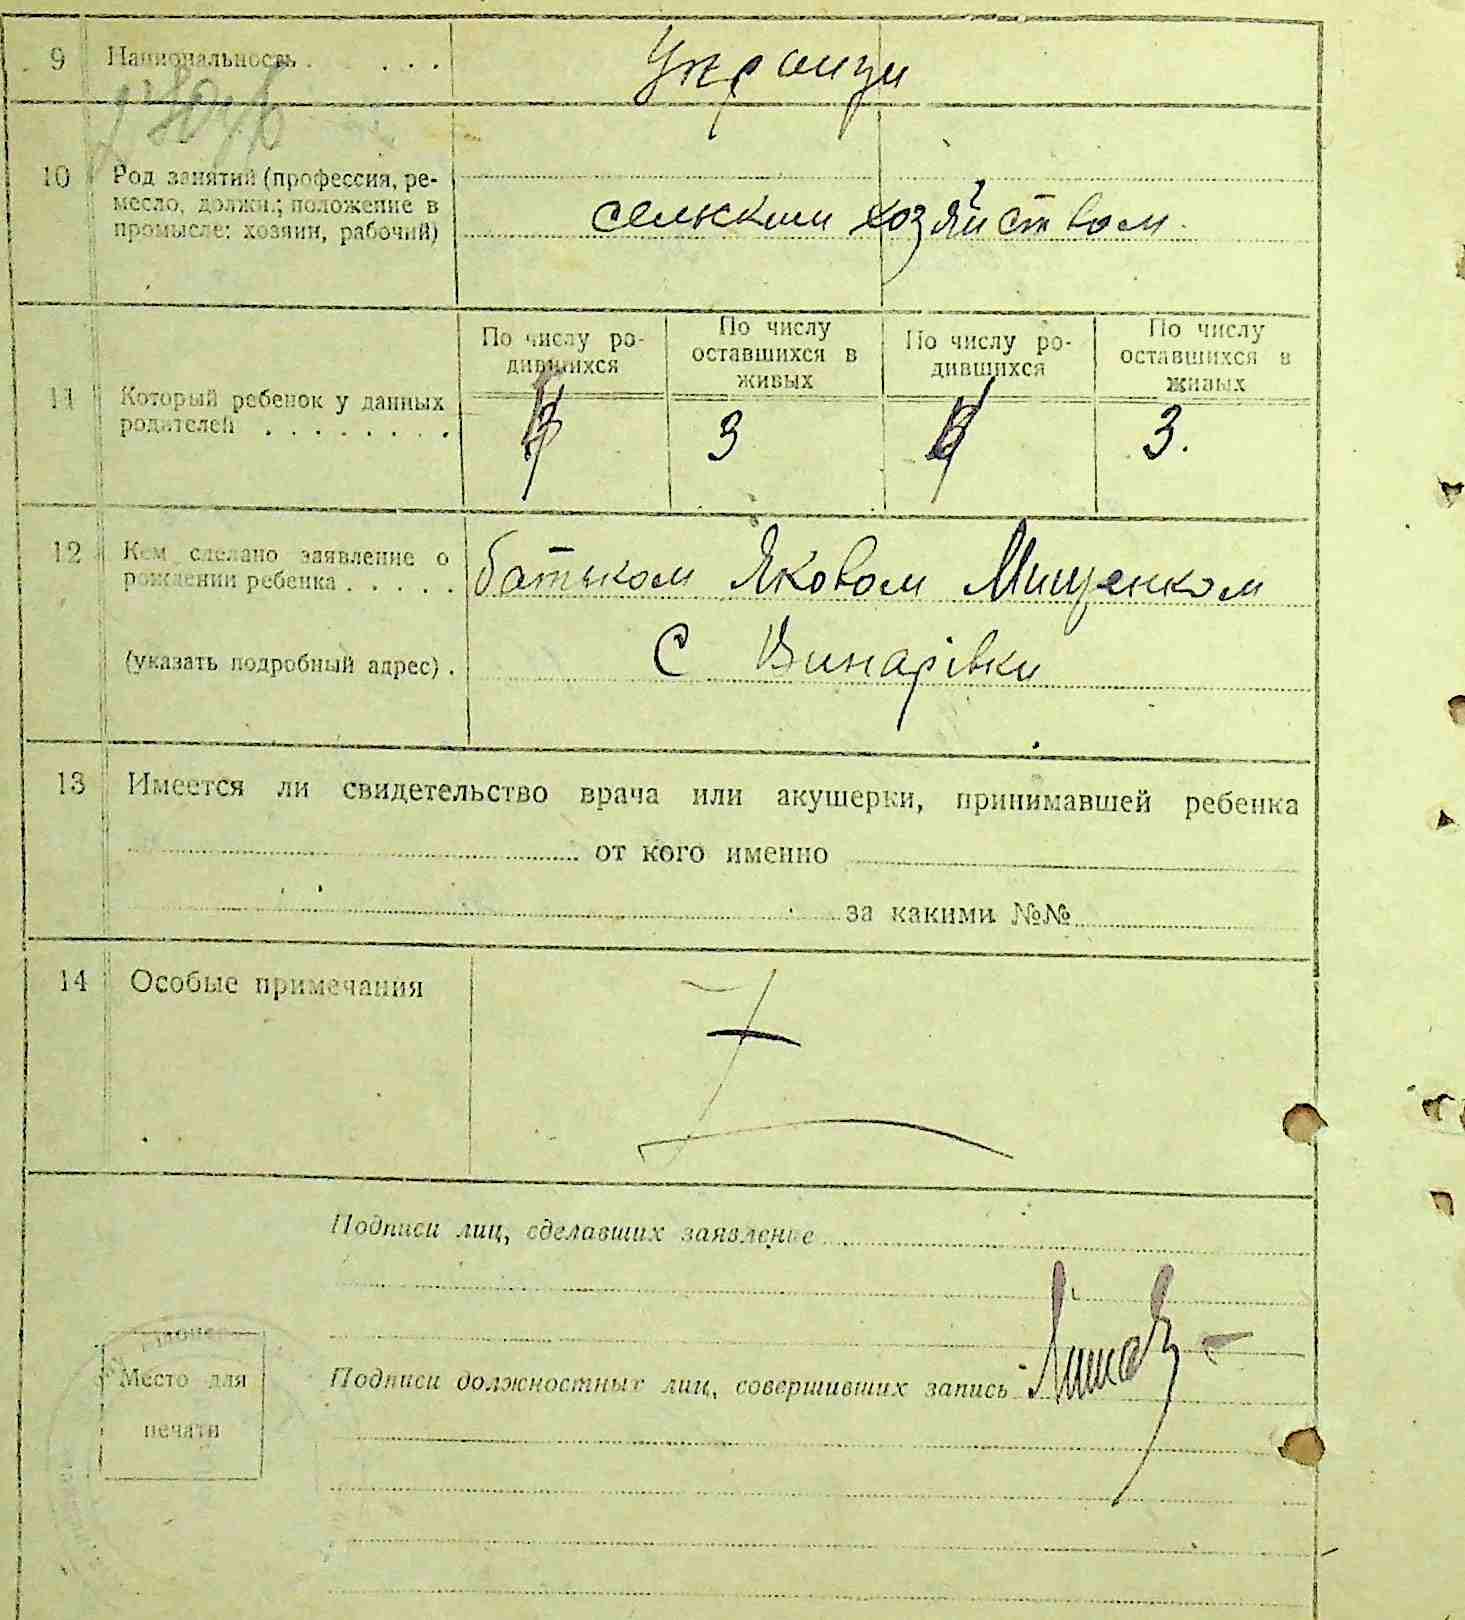 9 Национальность . . . . .
Украинци
10 Род занятий (профессия, ре-
месло, должн.; положение в
промысле: хозяин, рабочий)
сельским хозяйством
11 Который ребенок у данных
родителей . . . . . . . .
По числу ро-
дившихся
По числу
оставшихся в
живых
По числу ро-
дившихся
По числу
оставшихся в
живых
3 3.
12 Кем сделано заявление о
рождении ребенка . . . . .
(указать подробный адрес) .
батьком Яковом Мищенком
С Винарівки
13 Имеется ли свидетельство врача или акушерки, принимавшей ребенка
от кого именно
за какими №№
14 Особые примечания
Подписи лиц, сделавших заявление
Подписи должностных лиц, совершивших запись
Место для
печати